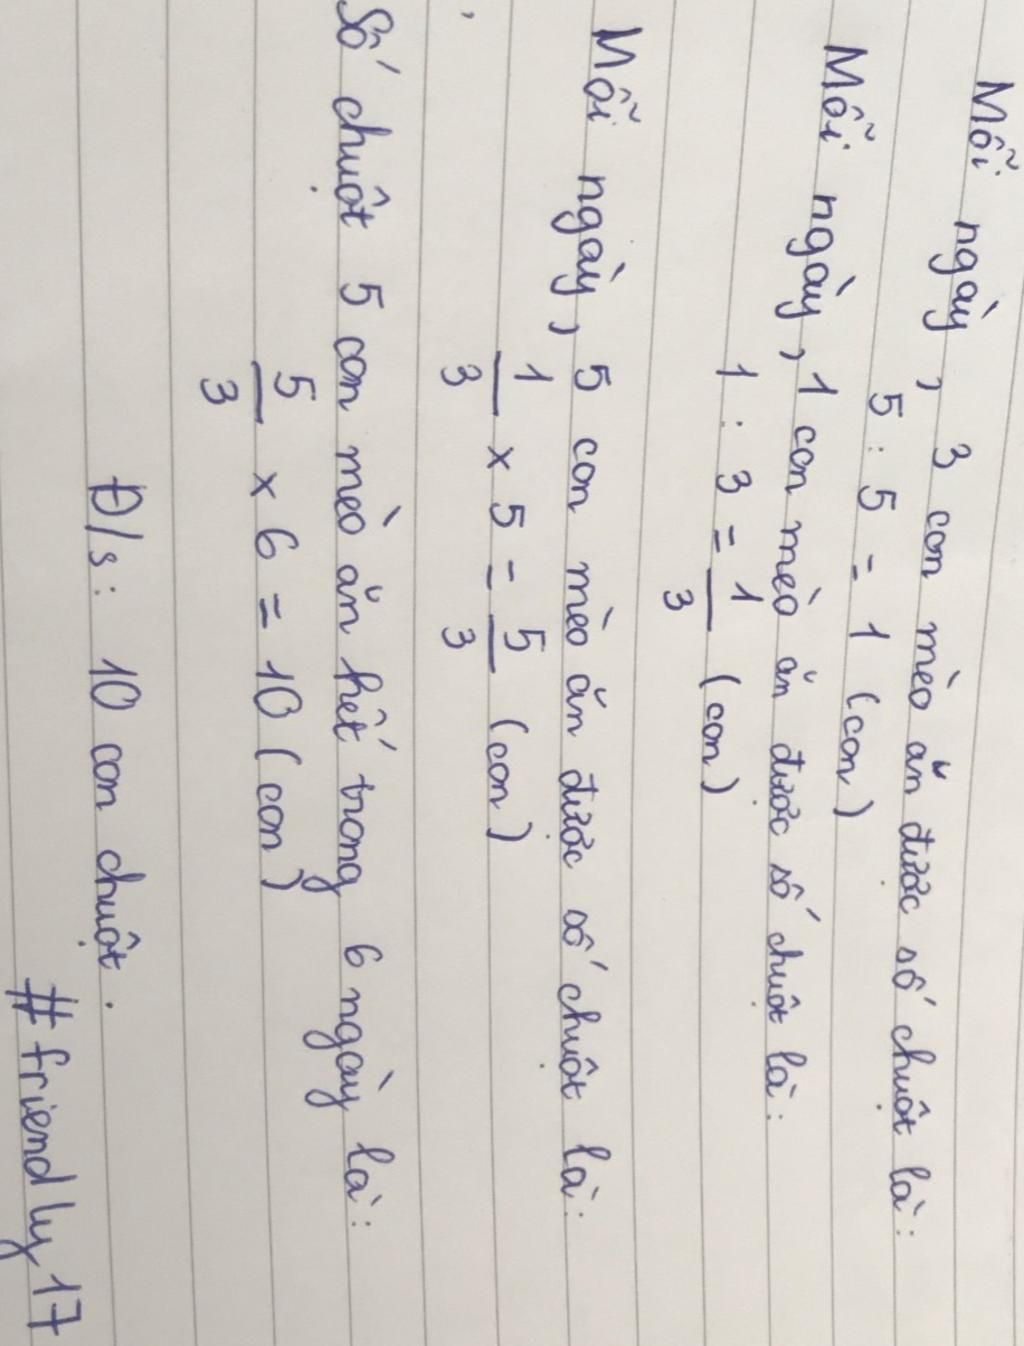 Mỗi ngày, 3 con mèo ăn được số chuột là:
5 : 5 = 1 (con)
Mỗi ngày, 1 con mèo ăn được số chuột là:
1 : 3 = 1/3 (con)
Mỗi ngày, 5 con mèo ăn được số chuột là:
1/3 x 5 = 5/3 (con)
Số chuột 5 con mèo ăn hết trong 6 ngày là:
5/3 x 6 = 10 (con)
Đ/s: 10 con chuột.
#friendly17